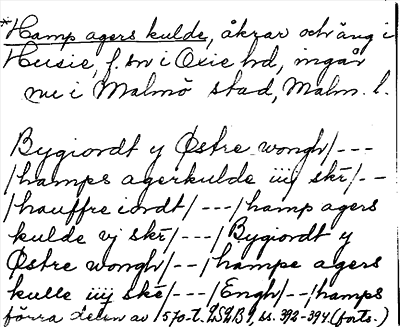 *Hamp agers kulde, åkrar och äng i
Husie, f. sn i Oxie hd, ingår
nu i Malmö stad, Malm. l.
Bygiordt y Østre wongh/---
/hamps agerkulde iiij skr/--
/hauffre iordt/---/hamp agers
kulde vj skr/---/Bygiordt y
Østre wongh/---/hampe agers
kulle iiij skr/---/Engh/--/hamps
förra delen av 1570-t. LSLB I, ss. 392-394 (forts.)